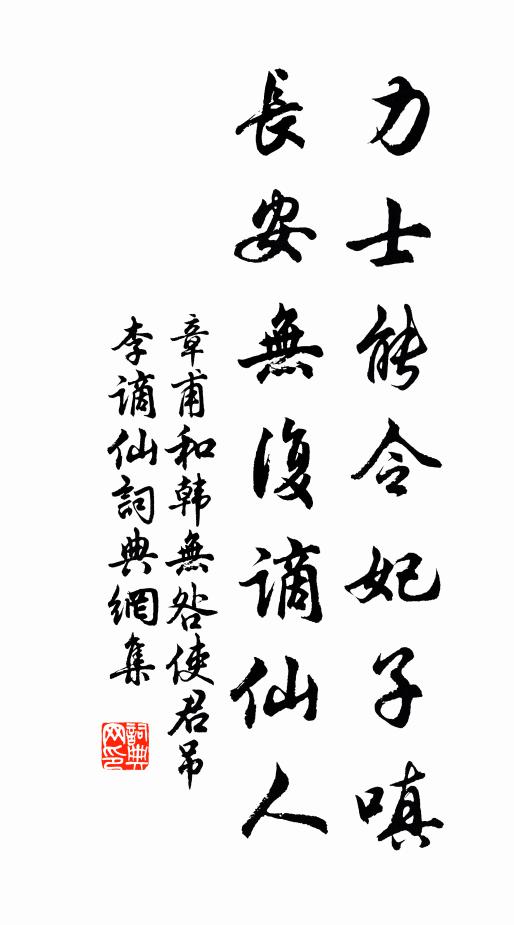 力士能令妃子嗔
長安無復謫仙人
章甫和韩無咎使君吊
李謫仙詞典網集
詞典
网印